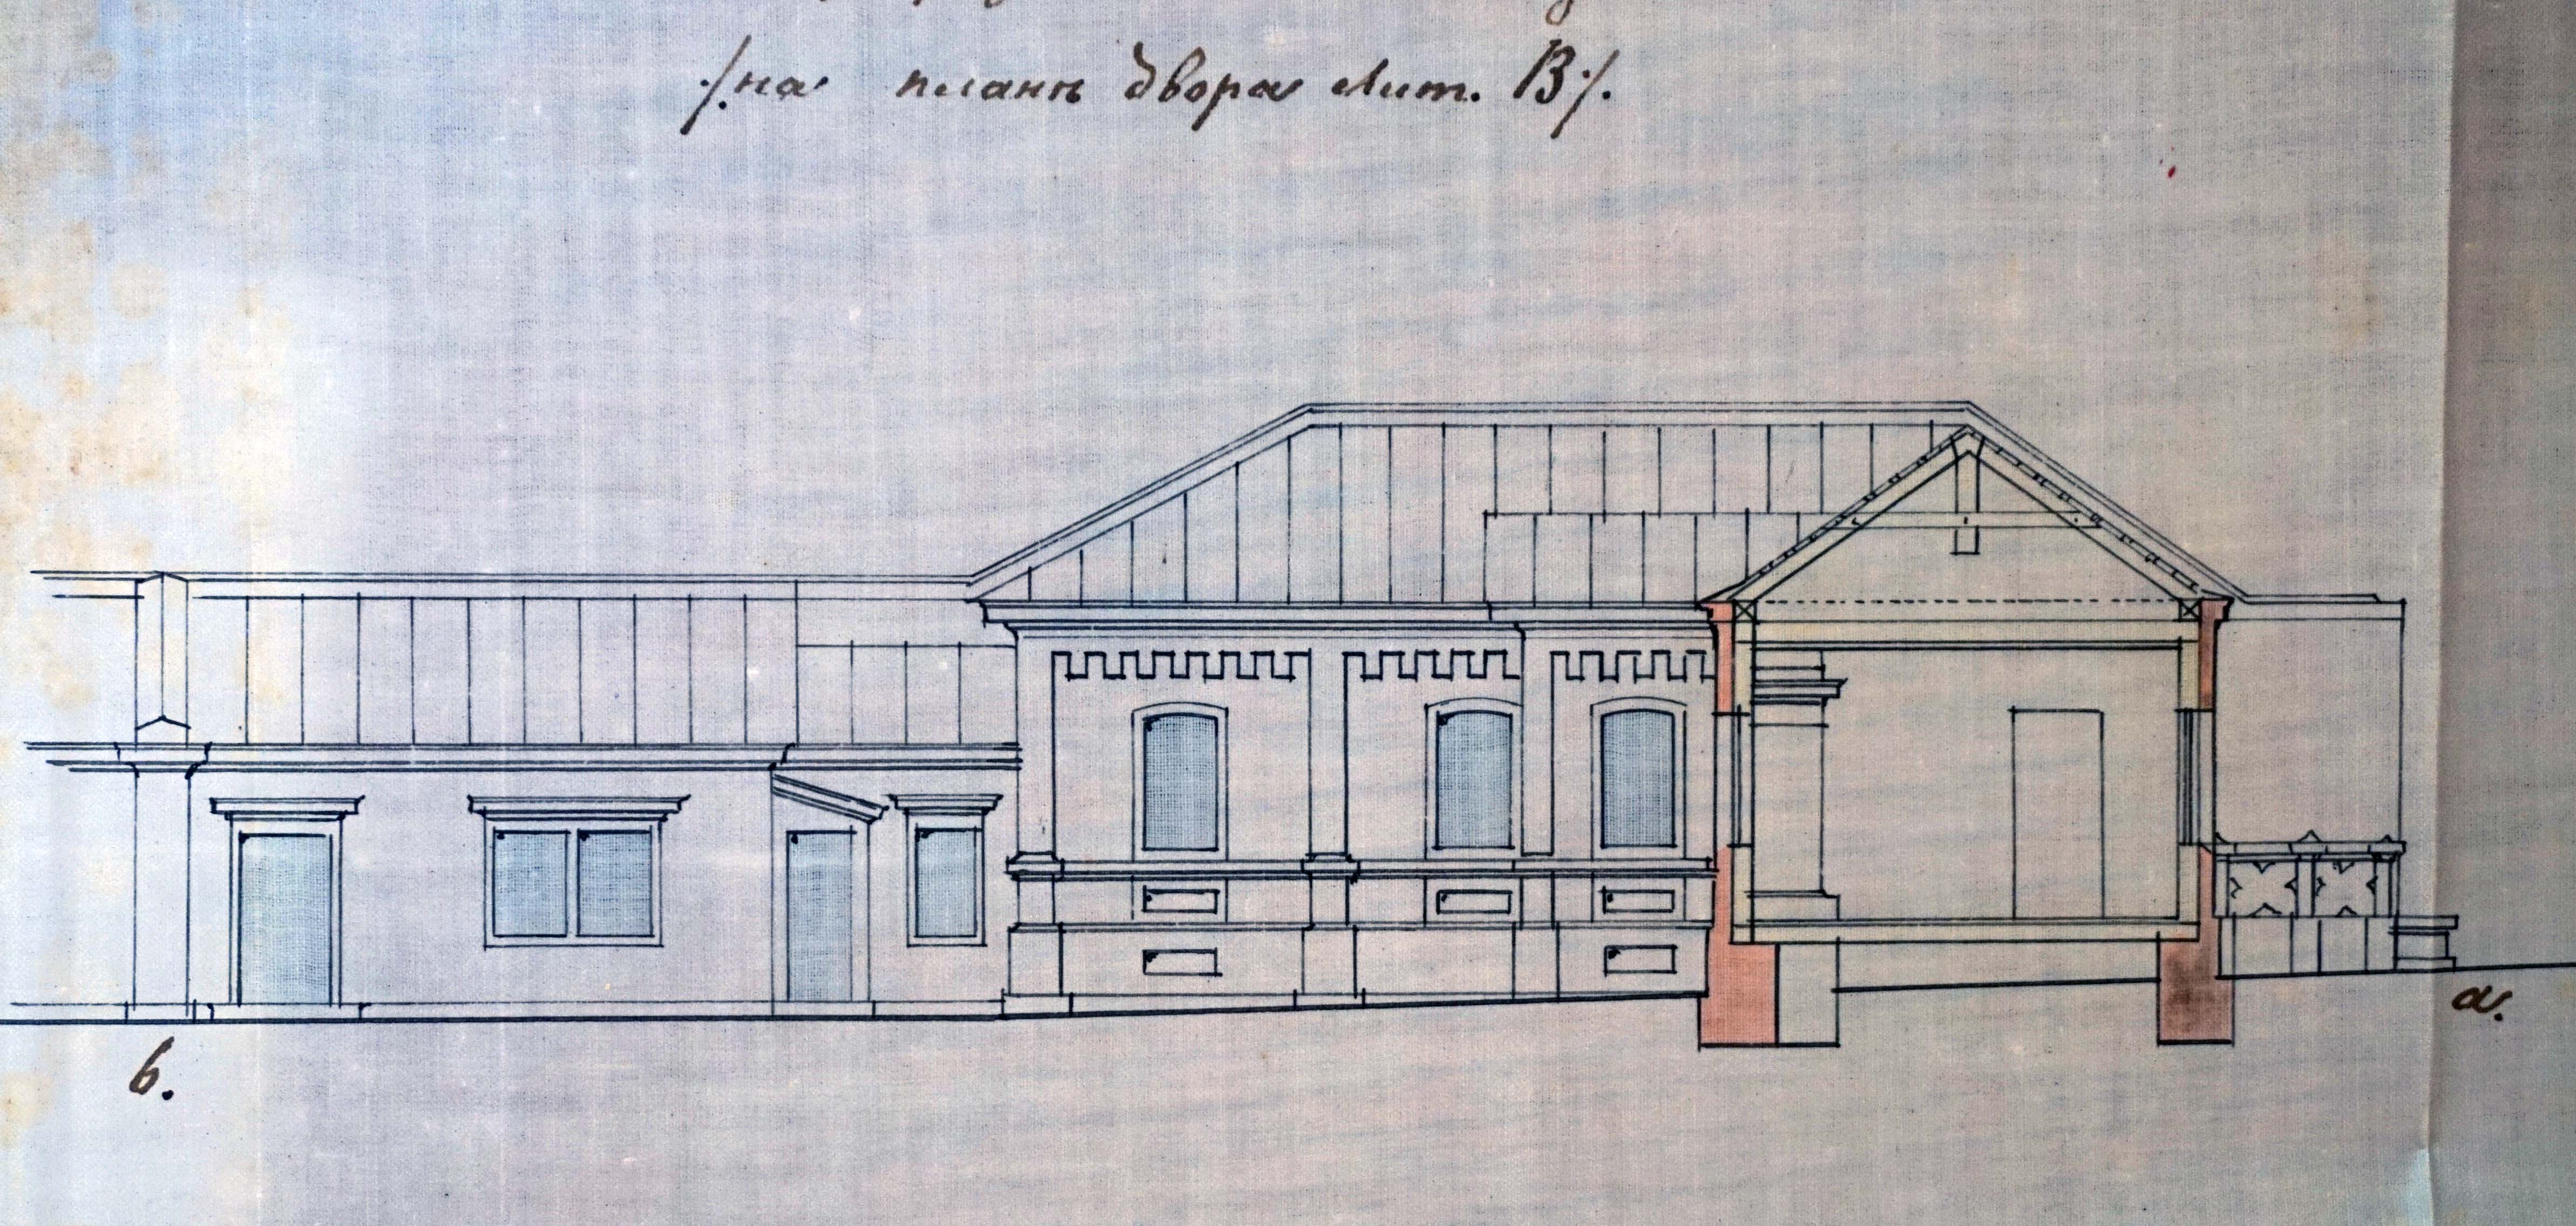 /.на планѣ двора Лит. В./.
в.
а.